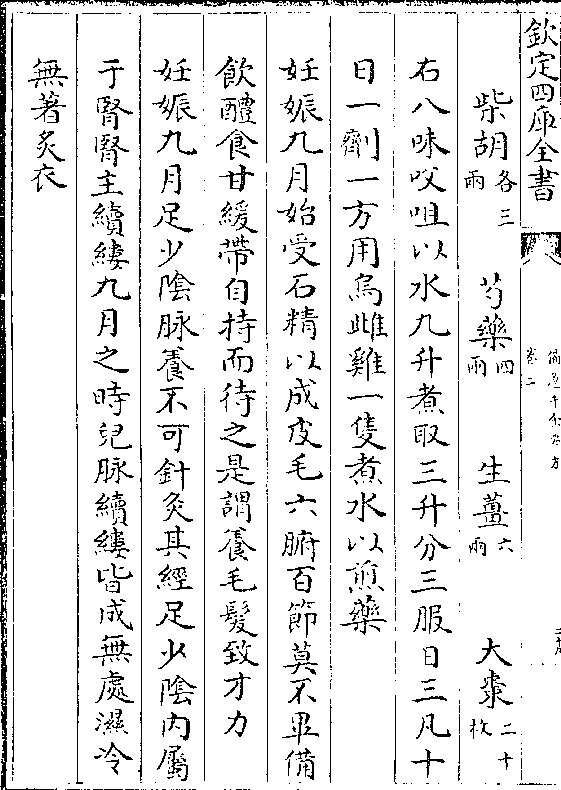 欽定四庫全書
備急千金要方
卷二
柴胡各三兩 芍藥四兩 生薑六兩 大棗二十枚
右八味㕮咀以水九升煮取三升分三服日三凡十
日一劑一方用烏雌雞一隻煮水以煎藥
妊娠九月始受石精以成皮毛六腑百節莫不畢備
飲醴食甘緩帶自持而待之是謂養毛髮致才力
妊娠九月足少陰脉養不可針灸其經足少陰内屬
于腎腎主續縷九月之時兒脉續縷皆成無處濕冷
無著炙衣